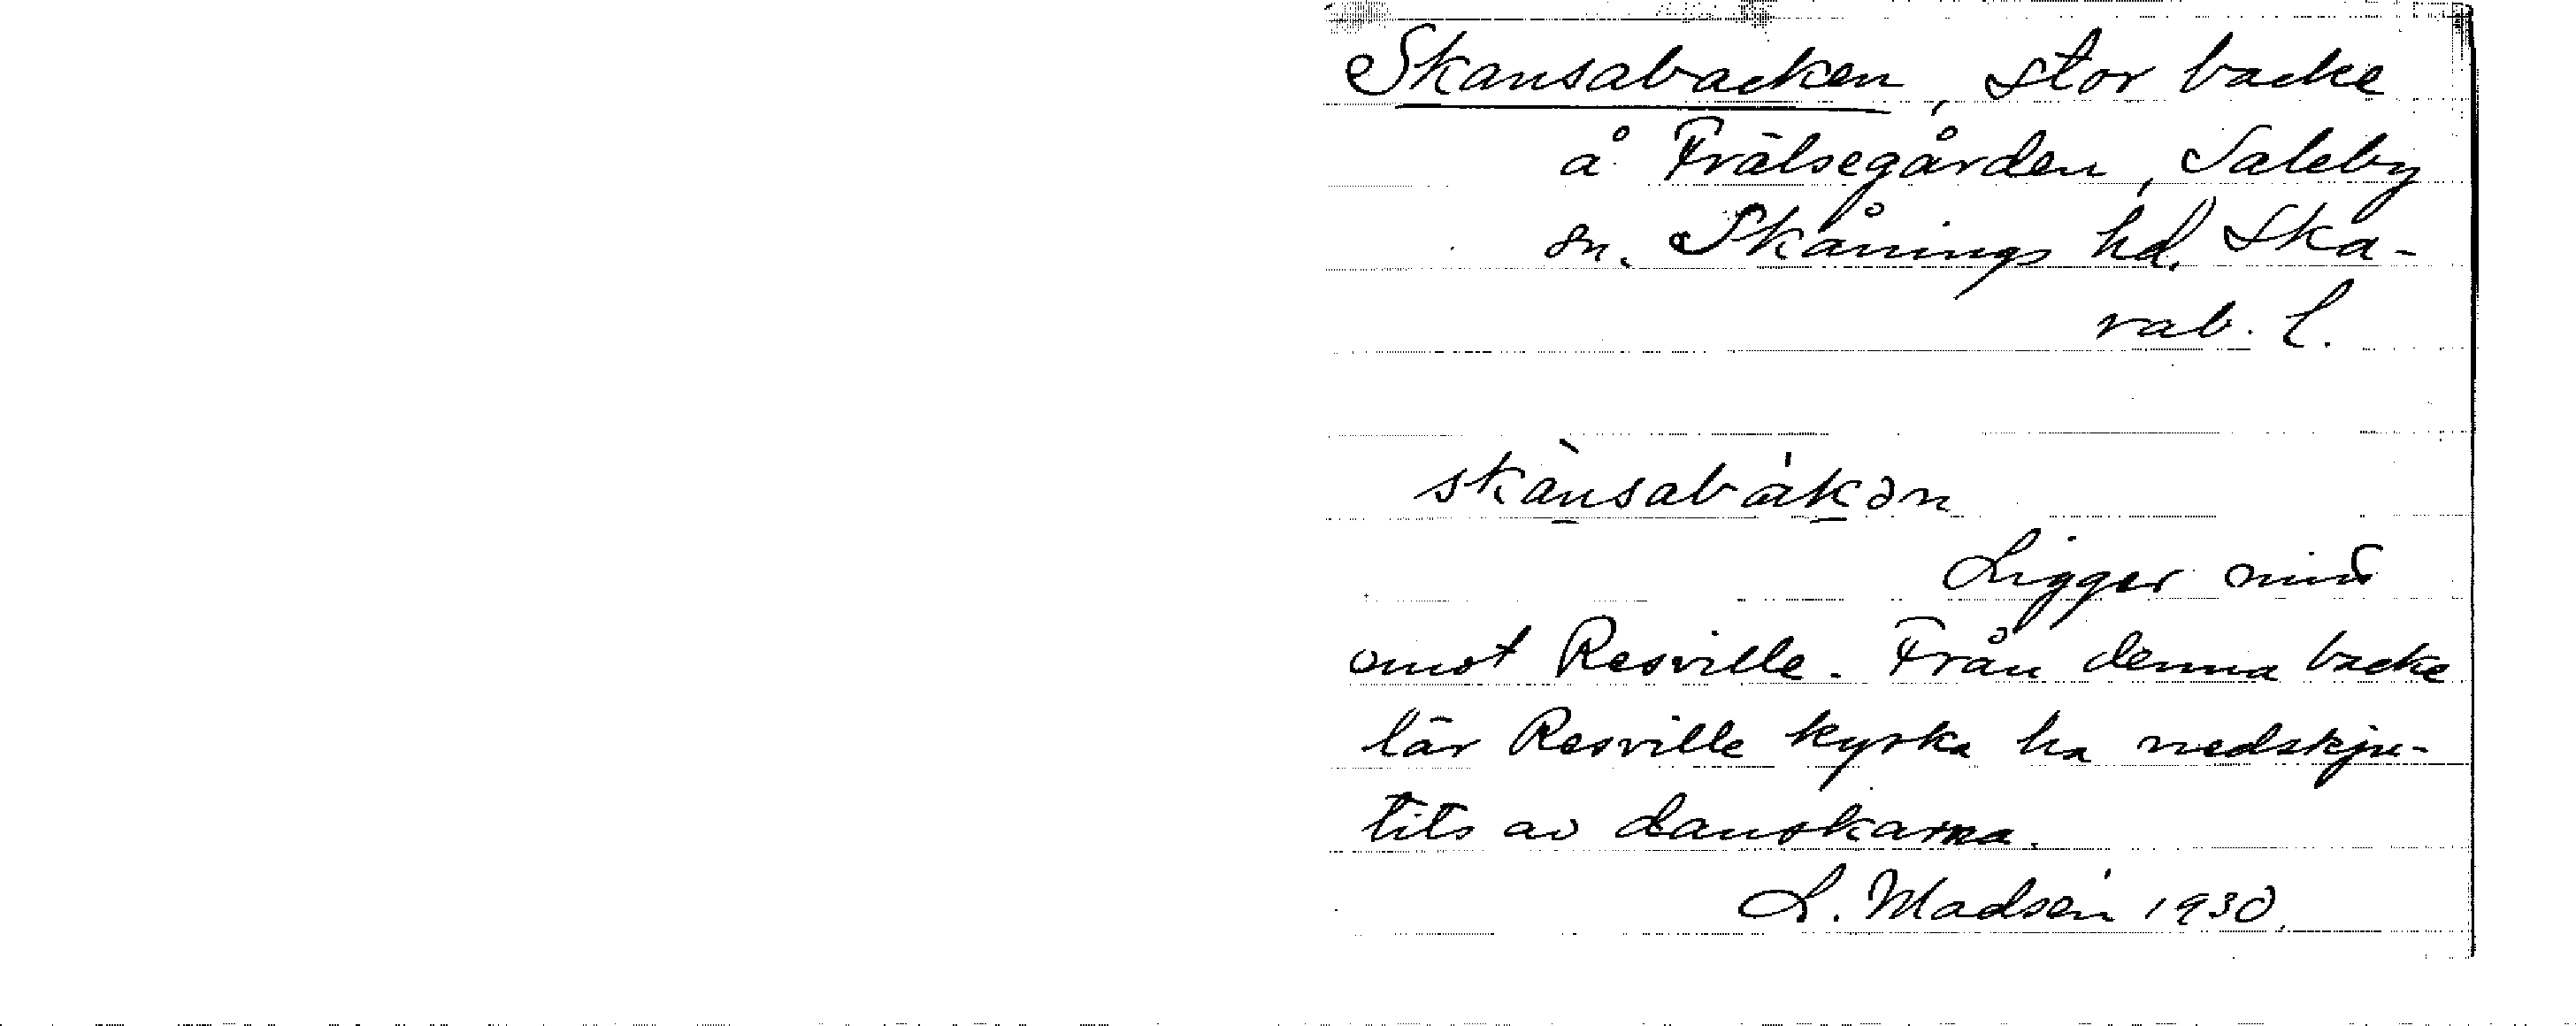 Skansabacken, stor backe
å Frälsegården, Saleby
sn. Skånings hd. Ska-
rab. l.
skànsabàkən
Ligger
omot Resville. Från denna backe
lär Resville kyrka ha nedskju-
tits av danskarna.
L. Madsén 1930.